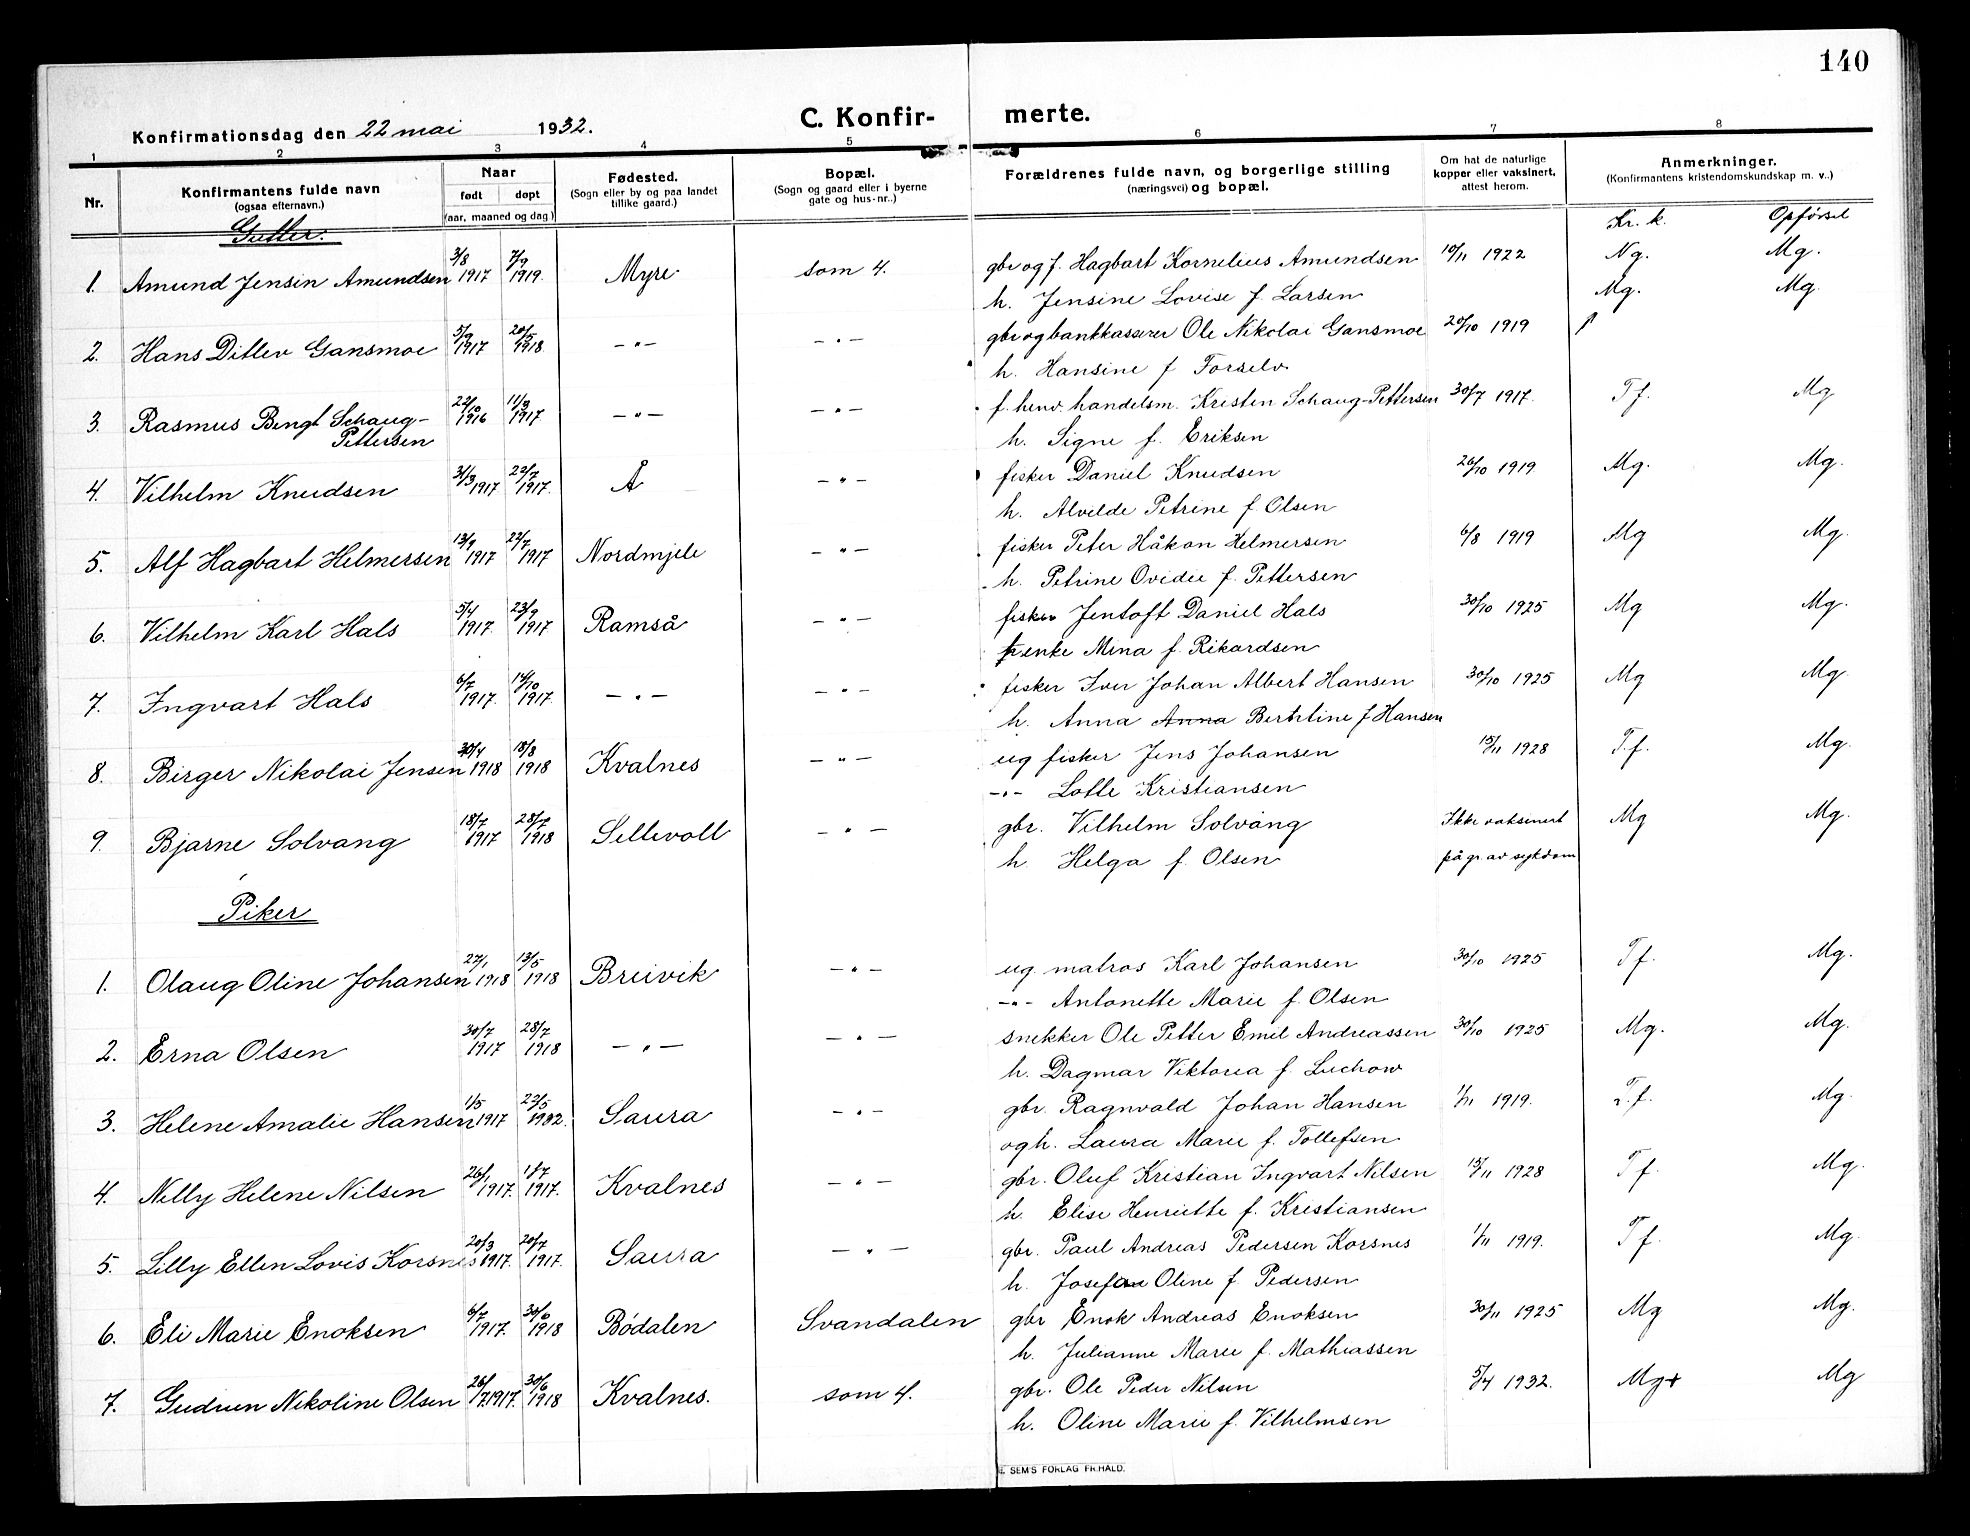 140
Konfirmationsdag den 22 mai 1932.
C. Konfir- merte.
1 2 3 4 5 6 7 8
Nr.
Konfirmantens fulde navn
(ogsaa efternavn.)
Naar
født døpt
(aar, maaned og dag)
Fødested.
(Sogn eller by og paa landet
tillike gaard.)
Bopæl.
(Sogn og gaard eller i byerne
gate og hus-nr..)
Forældrenes fulde navn, og borgerlige stilling
(næringsvei) og bopæl.
Om hat de naturlige
kopper eller vaksinert,
attest herom.
Anmerkninger.
(Konfirmantens kristendomskundskap m. v..)
Gutter. Kr. k. Opførsel
1. Amund Jensin Amundsen 3/8 1917 7/9 1919. Myre som 4. gbr og f. Hagbart Kornelius Amundsen 10/11 1922 Ng. Mg.
h. Jensine Lovise f. Larsen Mg. Mg.
2. Hans Ditlev Gansmoe 5/9 1917 20/5 1918 -"- -"- gbr og bankkasserer Ole Nikolai Gansmoe 20/10 1919
h. Hansine f Torselv
3. Rasmus Bengt Schaug- 22/10 1916 11/3 1917 -"- -"- f. henv. handelsm. Kristen Schaug-Pettersen 30/7 1917. T f. Mg
Pettersen h. Signe f. Eriksen
4. Vilhelm Knudsen 31/3 1917 22/7 1917. Å -"- fisker Daniel Knudsen 26/10 1919 Mg. Mg.
h. Alvilde Petrine f. Olsen
5. Alf Hagbart Helmersen 13/9 1917 22/7 1917 Nordmjele -"- fisker Peter Håkon Helmersen 6/8 1919 Mg Mg.
h. Petrine Ovidie f. Pettersen
6. Vilhelm Karl Hals 5/4 1917. 23/9 1917 Ramså -"- fisker Jentoft Daniel Hals 30/10 1925 Mg Mg.
enke Mina f. Rikardsen
7. Ingvart Hals 6/7 1917. 14/10 1917. -"- -"- fisker Iver Johan Albert Hansen 30/10 1925 Mg Mg.
h. Anna Anna Bertine f Hansen
8. Birger Nikolai Jensen 30/4 1918 18/8 1918 Kvalnes -"- ug fisker Jens Johansen 15/11 1928 T.f. Mg.
-"- Lotte Kristiansen
9. Bjarne Solvang 18/7 1917 28/7 1918 Sellevoll -"- gbr. Vilhelm Solvang Ikke vaksinert Mg Mg.
h Helga f. Olsen på gr. av sykdom
Piker
1. Olaug Oline Johansen 27/1 1918 13/5 1918 Breivik -"- ug. matros Karl Johansen 30/10 1925 T f. Mg.
-"- Antonette Marie f. Olsen
2. Erna Olsen 30/7 1917 28/7 1918 -"- -"- snekker Ole Petter Emil Andreassen 30/10 1925 Mg. Mg.
h. Dagmar Viktoria f. Luchow
3. Helene Amalie Hansen 1/5 1917 23/5 1932. Saura -"- gbr. Ragnvald Johan Hansen 1/11 1919. T.f. Mg.
og h. Laura Marie f. Tollefsen
4. Nelly Helene Nilsen 26/1 1917. 1/7 1917. Kvalnes -"- gbr. Oluf Kristian Ingvart Nilsen 15/11 1928 T f. Mg.
h. Elise Henriette f. Kristiansen
5. Lilly Ellen Lovis Korsnes 20/3 1917. 20/7 1917. Saura -"- gbr. Paul Andreas Pedersen Korsnes 1/11 1919. T f. Mg.
h. Josefine Oline f. Pedersen
6. Eli Marie Enoksen 6/7 1917. 30/6 1918 Bødalen Svandalen gbr Enok Andreas Enoksen 30/11 1925 Mg Mg.
h. Julianne Marie f. Mathiassen
7. Gudrun Nikoline Olsen 26/7 1917. 30/6 1918 Kvalnes. som 4. gbr. Ole Peder Nilsen 5/4 1932. Mg+ Mg
h. Oline Marie f. Vilhelmsen
SEM'S FORLAG FR.HALD.